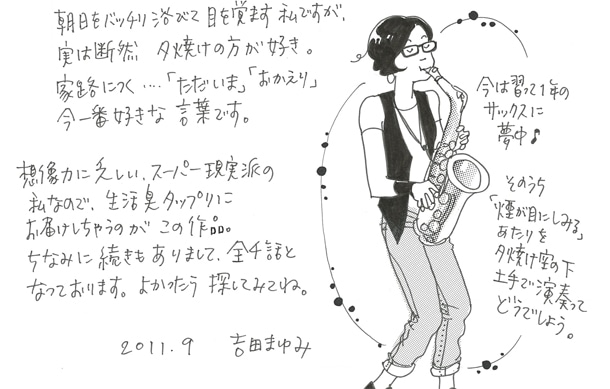 朝日をバッチリ浴びて目を覚ます私ですが、
実は断然 夕焼けの方が好き。
家路につく‥‥「ただいま」「おかえり」
今一番好きな言葉です。
想像力に乏しい、スーパー現実派の
私なので、生活臭タップリに
お届けしちゃうのがこの作品。
ちなみに続きもありまして、全4話と
なっております。よかったら探してみてね。
2011.9 吉田まゆみ
今は習って1年の
サックスに
夢中♪
そのうち
「煙が目にしみる」
あたりを
夕焼け空の下
土手で演奏って
どうでしょう。